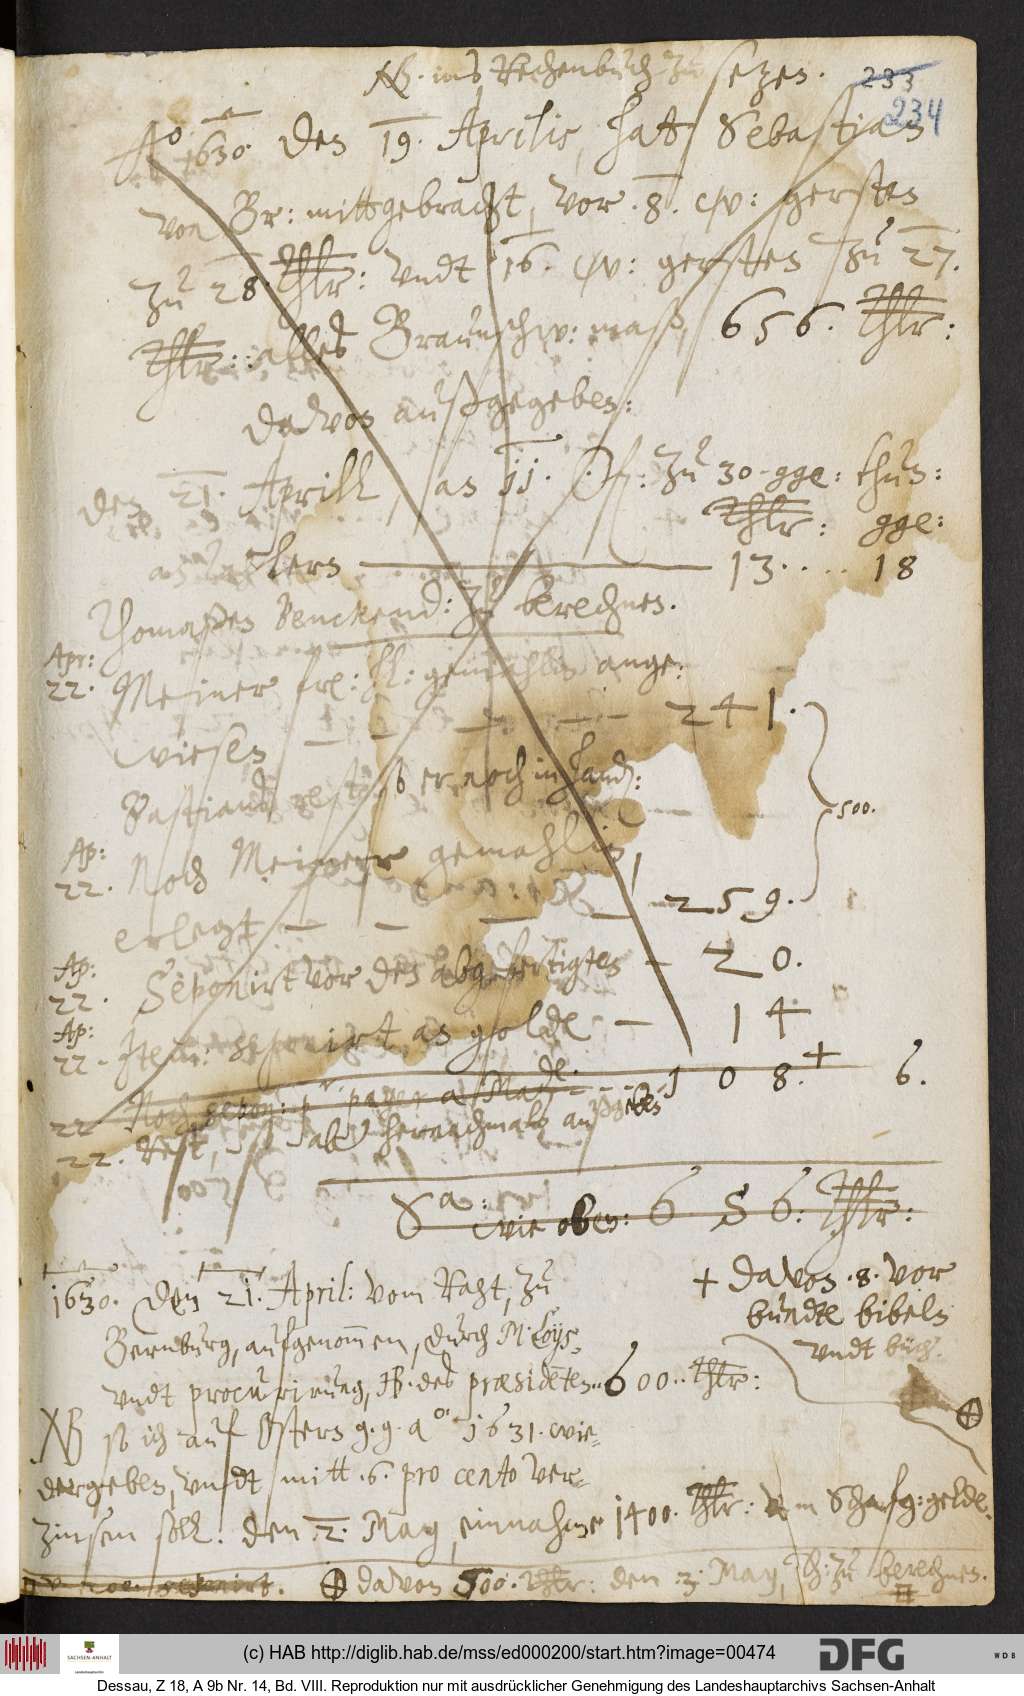 NB. ins Rechenbuch zu setzen. 233
234
Ao 1630. den 19. Aprilis, hat Sebastian
von Br: mittgebracht, vor .8. w: gersten
zu 28. Thlr: undt 16. w: gersten zu 27.
Thlr: alles Braunschw: maß, 656. Thlr:
davon außgegeben:
den 21. Aprill, an 11. zu 30 gge: thun:
Thlr: gge:
13. . . . . 18
Thomaßen Benckend: zu berechnen.
Apr:
22. Meiner frl: hl: gemahlin ange:
wiesen — — — 241.
Bastians rest, so er noch in händ:
500.
Ap:
22. Noch Meiner gemahlin
erlegt — — — 259.
Ap:
22. Seponirt vor den abgefertigten — 20.
Ap:
22. Item: seponirt an golde — 14
22 Noch sepon: 108.+ 6.
22. Rest, hernachmals außgeben
Sa: wie oben: 656: Thlr:
1630. den 21. April: vom Raht, zu
Bernburg, aufgenommen, durch M: Loys,
undt procurirung, H. des præsidēten.. 600.. thlr:
NB so ich auf Ostern g. g. ao 1631. wie=
dergeben, undt mitt .6. pro cento ver=
zinsen soll. den 2. May, einnahme 1400. Thlr: vom Schafg: gelde.
+ davon .8. vor
bundte bibeln
undt büch.
⊕
seponirt. ⊕ davon 500. Thlr: den 3. May, Th: zu berechnen.
#
(c) HAB http://diglib.hab.de/mss/ed000200/start.htm?image=00474
SACHSEN-ANHALT
DFG
WDB
Dessau, Z 18, A 9b Nr. 14, Bd. VIII. Reproduktion nur mit ausdrücklicher Genehmigung des Landeshauptarchivs Sachsen-Anhalt